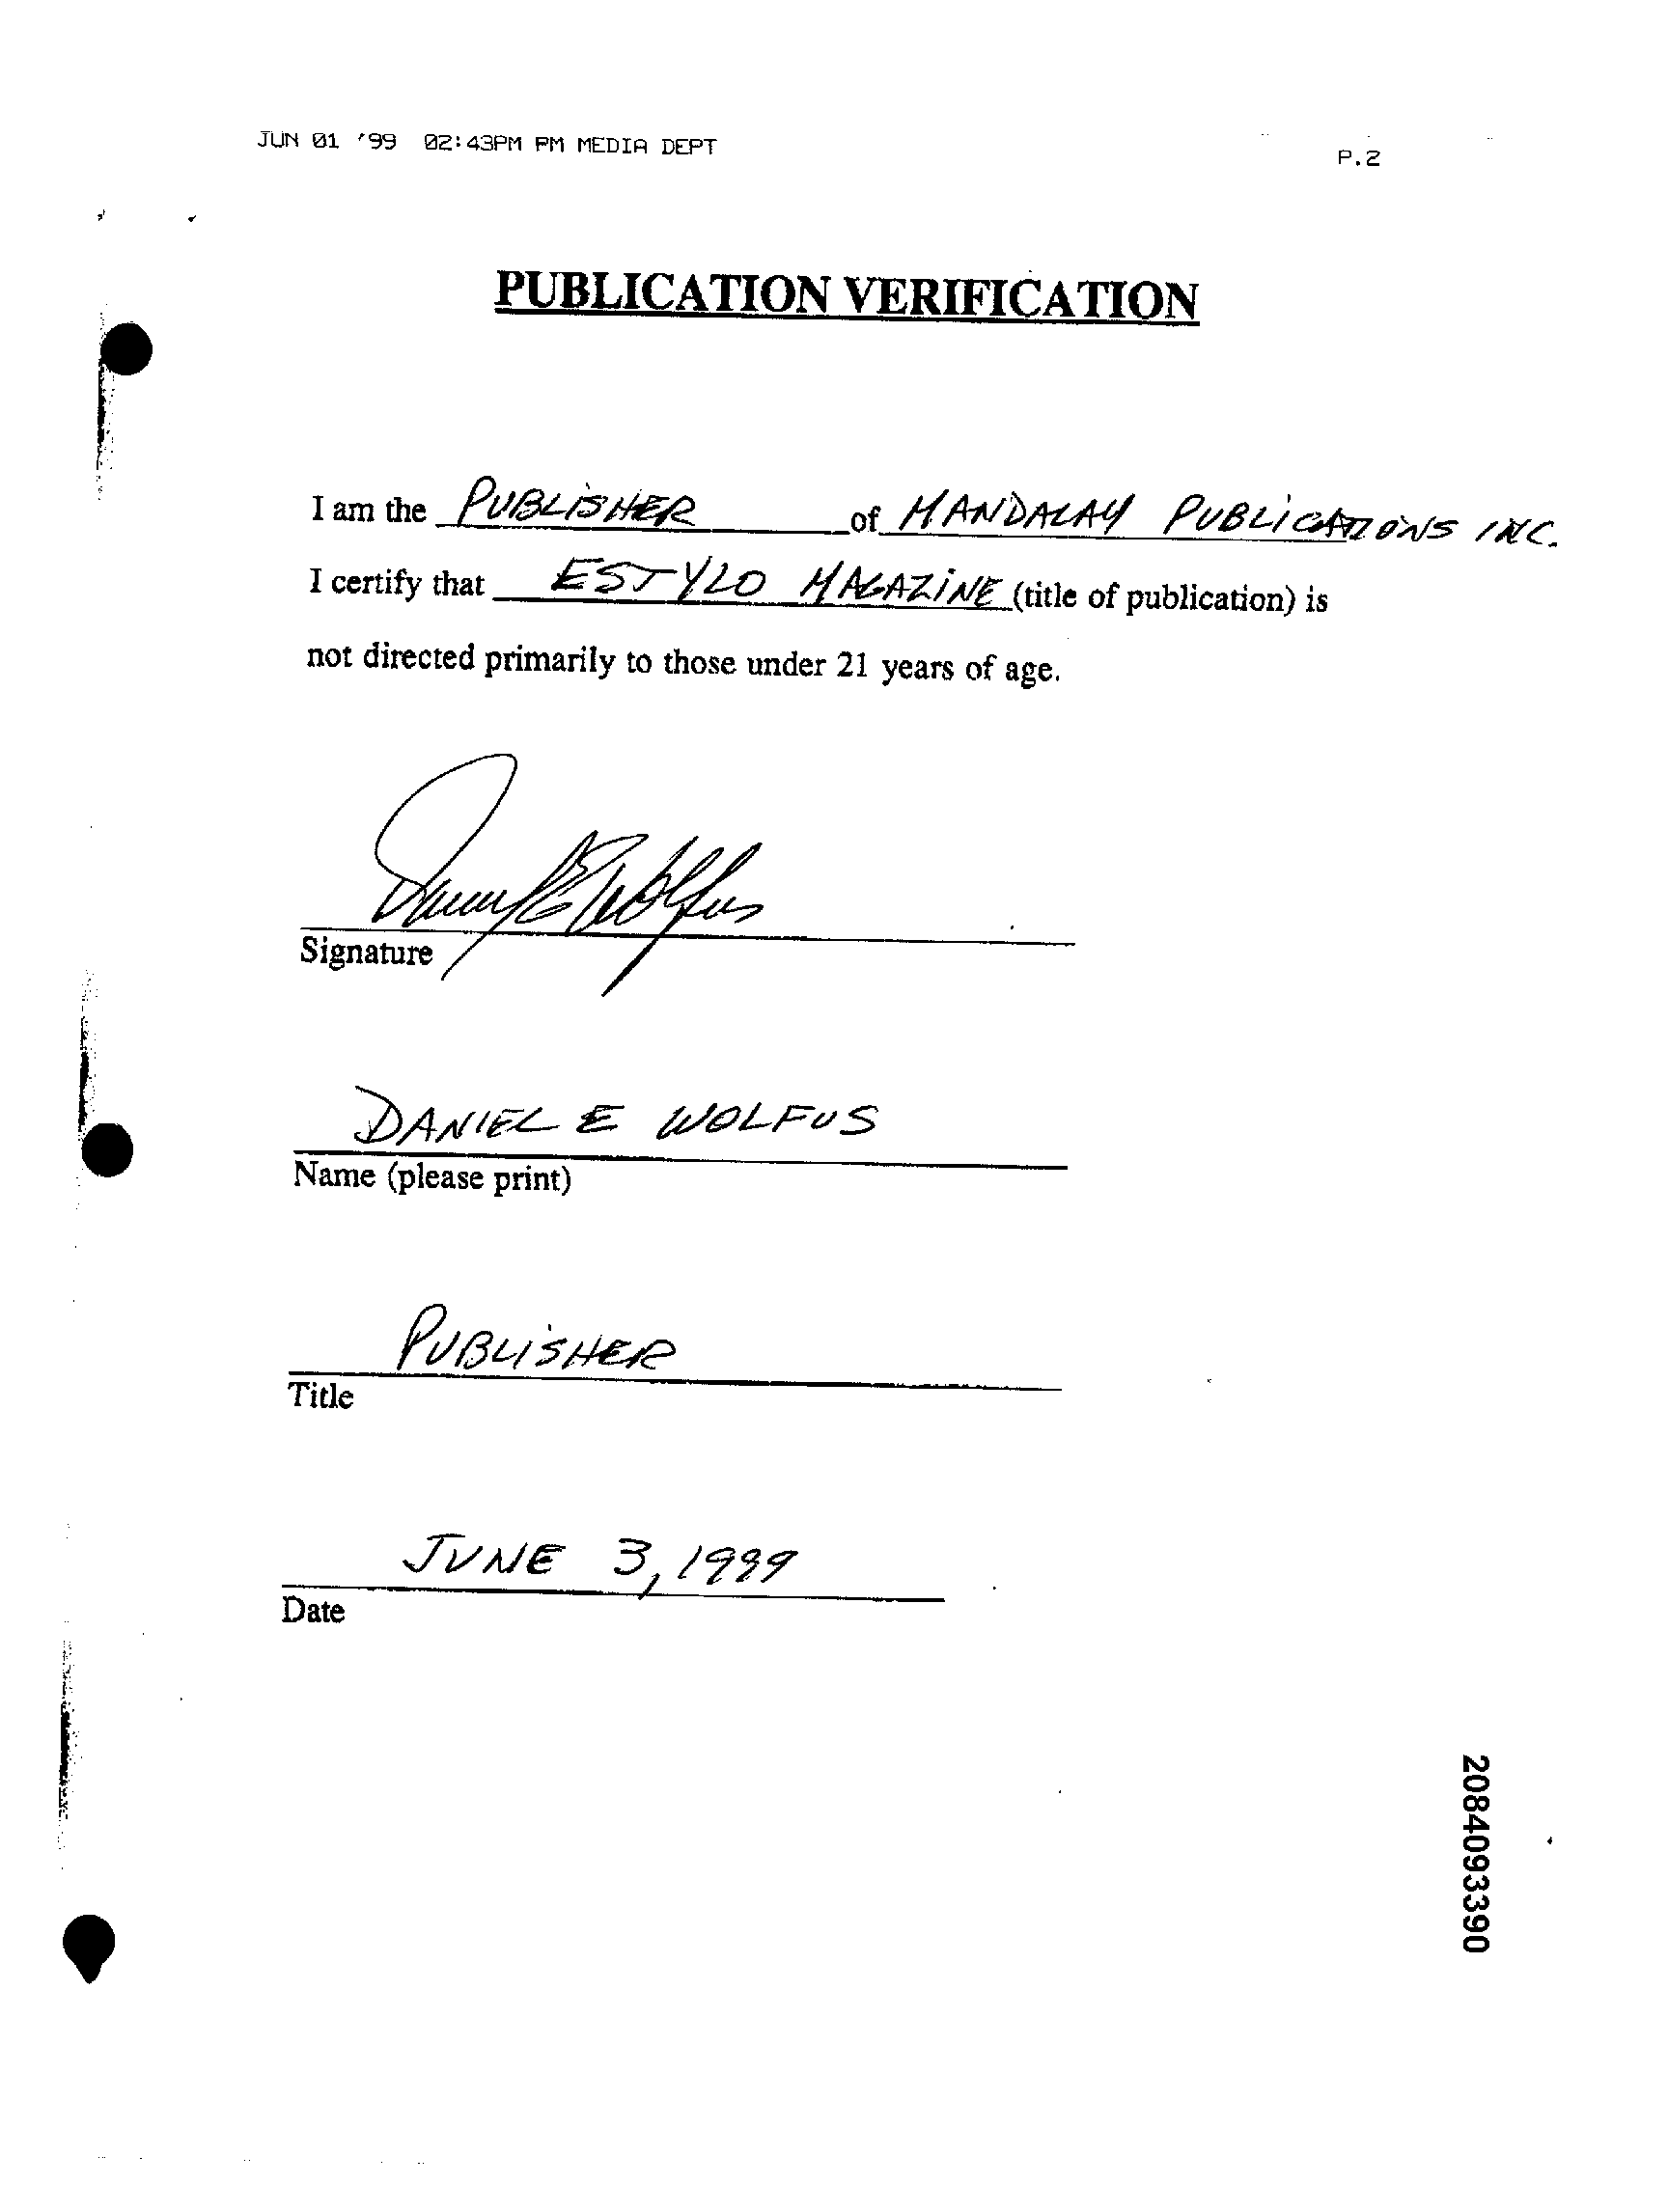 JUN 01 '99 02:43PM PM MEDIA DEPT P.2
PUBLICATION VERIFICATION
I am the PUBLISHER of MANDALAY PUBLICATIONS INC.
I certify that ESTYLO MAGAZINE (title of publication) is
not directed primarily to those under 21 years of age.
Daniel E Wolfus
Signature
DANIEL E WOLFUS
Name (please print)
PUBLISHER
Title
JUNE 3, 1999
Date
2084093390